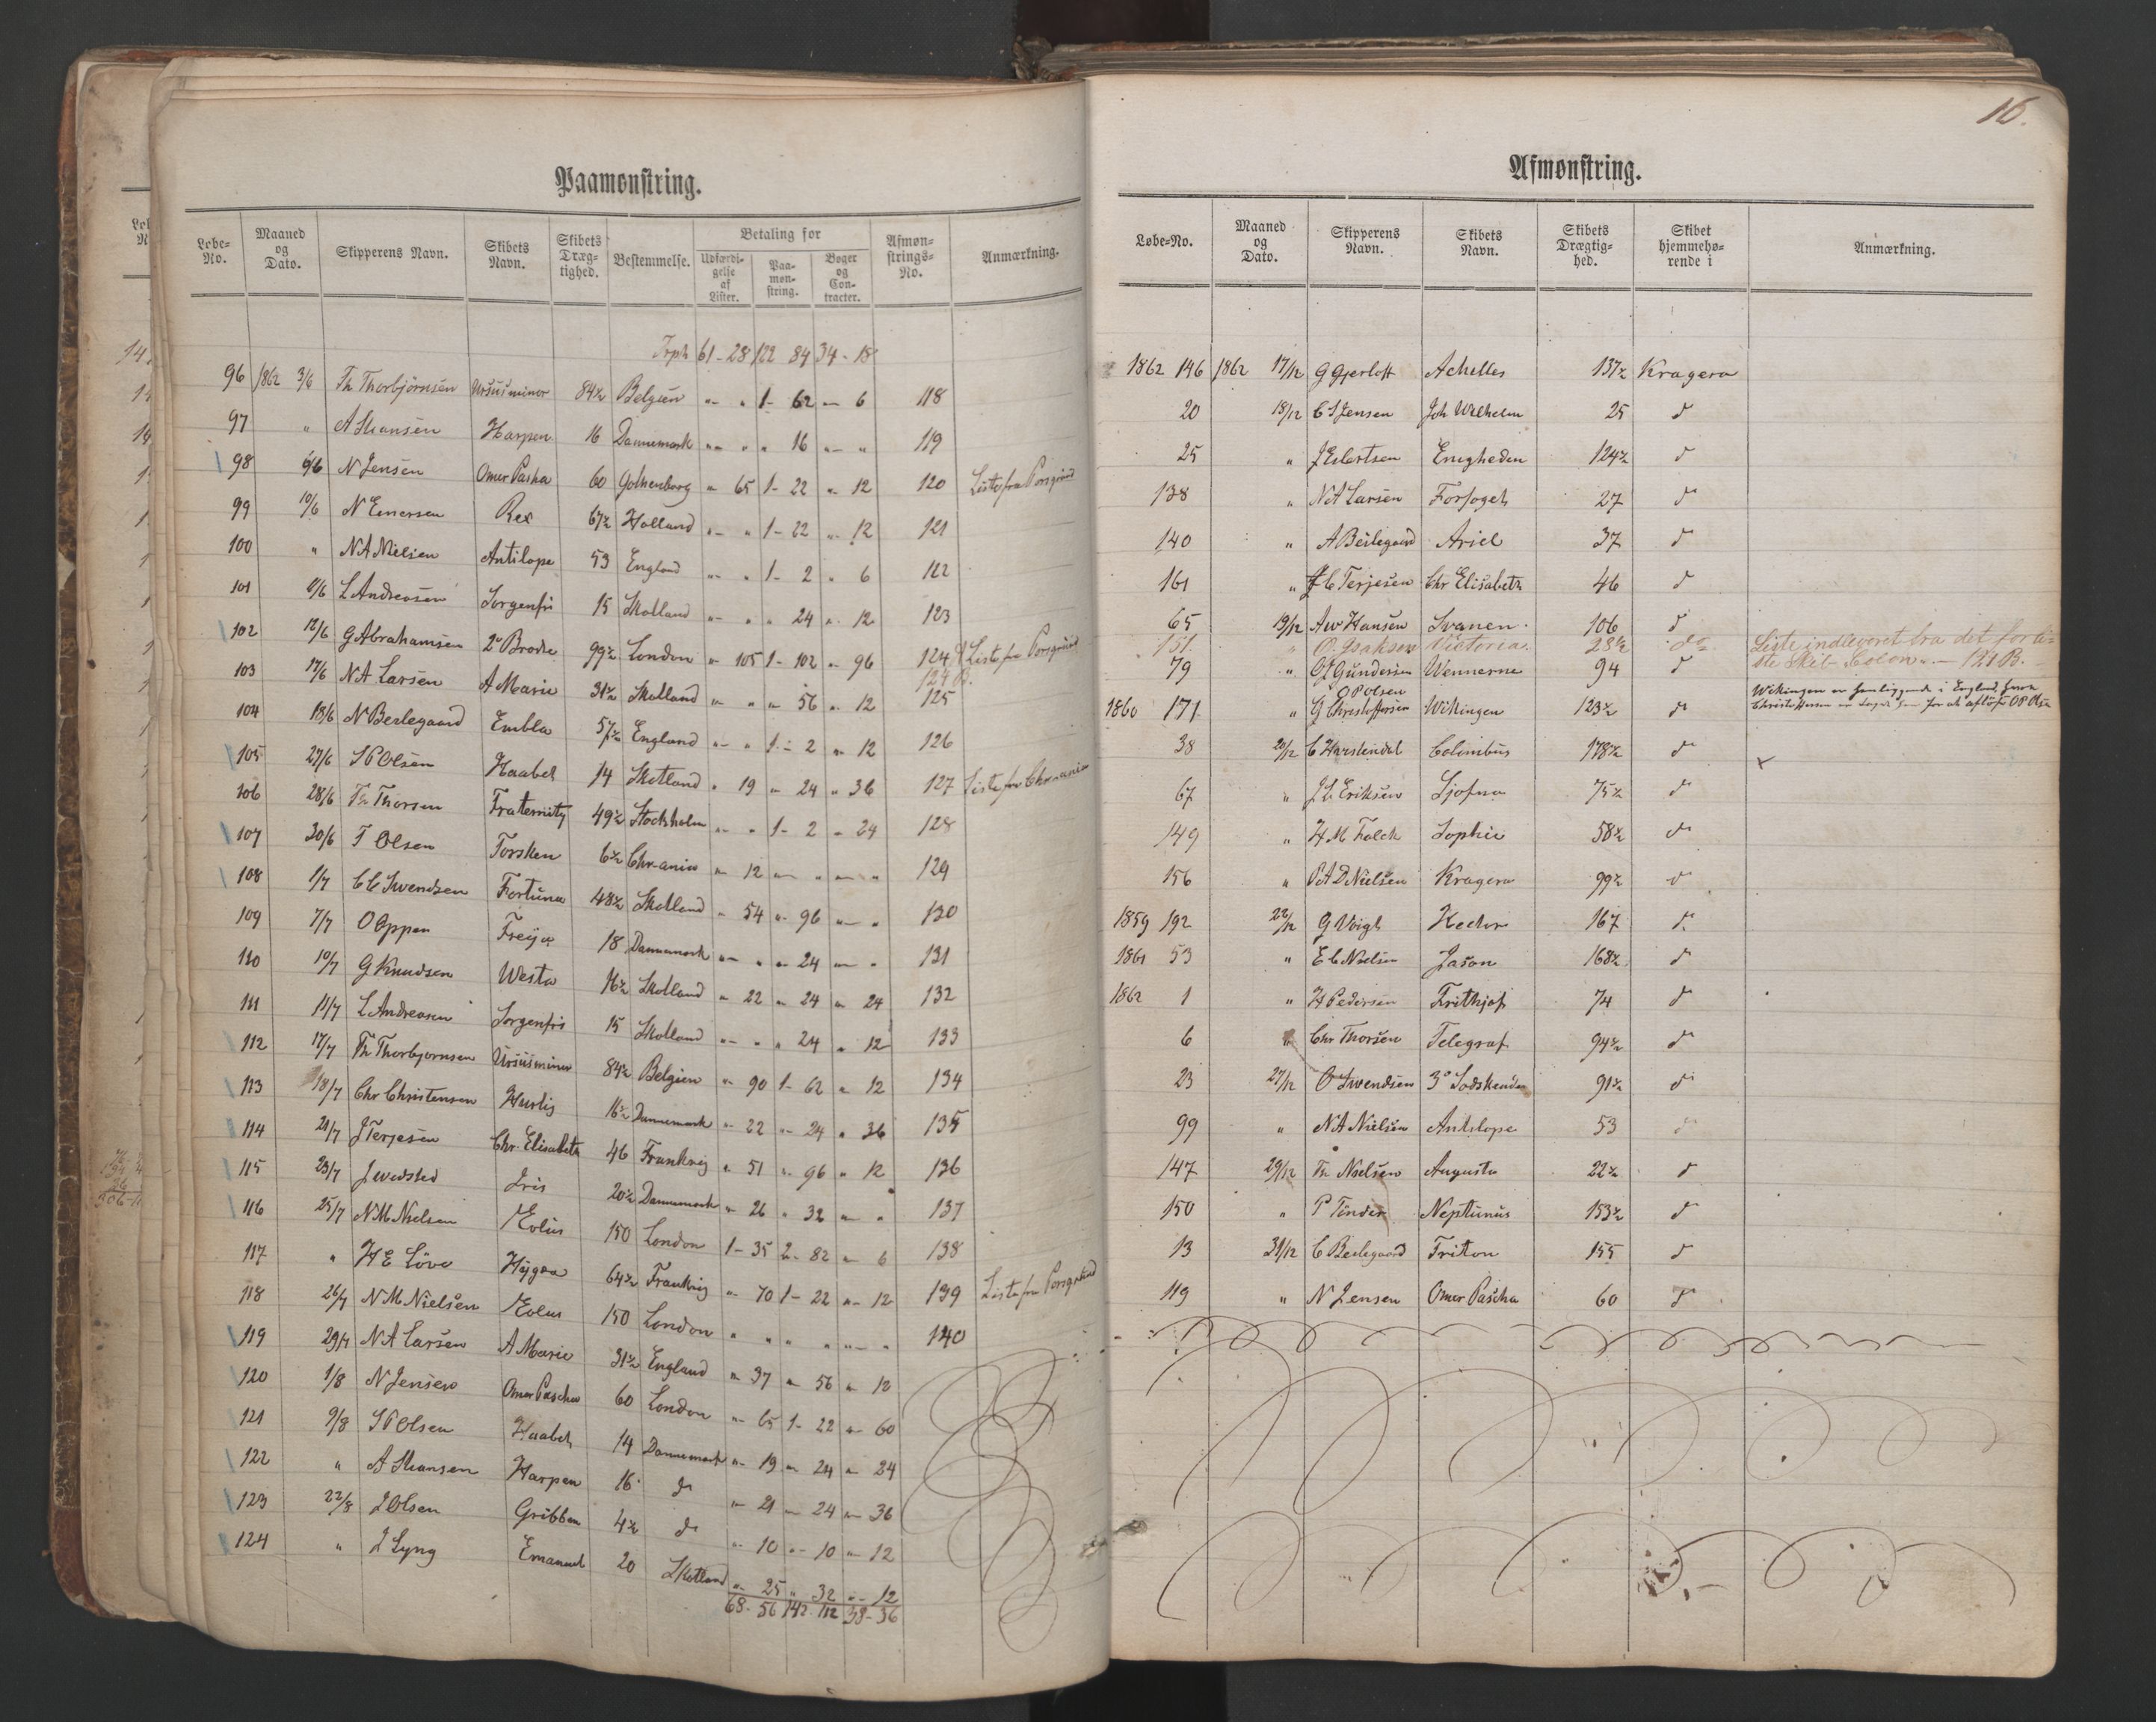 Paamønstring.
Løbe-No. Maaned og Dato. Skipperens Navn. Skibets Navn. Skibets Dræg-tighed. Bestemmelse. Betaling for Udfærdi-gelse af Lister. Paa-møn-string. Bøger og Con-tracter. Afmøn-strings-No. Anmærkning.
Trpt 61-28 122 84 34-18
96 1862 3/6 Th Thorbjørnsen Ursus minor 84½ Belgien " " 1- 62 " 6 118
97 " A Hansen Harpen 16 Dannemark " " " 16 " " 119
98 6/6 N Jensen Omer Pasha 60 Gothenborg " 65 1- 22 " 12 120 Liste fra Porsgrund
99 10/6 N Enersen Rex 67½ Holland " " 1- 22 " 12 121
100 " N A Nielsen Antilope 53 England " " 1- 2 " 6 122
101 11/6 L Andreasen Sorgenfri 15 Skotland " " " 24 " 12 123
102 12/6 G Abrahamsen 2de Brodre 99½ London " 105 1- 102 " 96 124 Liste fra Porsgrund
124 B.
103 17/6 N A Larsen A Marie 31½ Skotland " " " 56 " 12 125
104 18/6 N Beslegaard Embla 57½ England " " 1- 2 " 12 126
105 27/6 S P Olsen Haabet 14 Skotland " 19 " 24 " 36 127 Liste fra Chr-ania
106 28/6 Th Thorsen Fraternity 49½ Stockholm " " 1- 2 " 24 128
107 30/6 T Olsen Torsken 6½ Chr-ania " 12 " " " " 129
108 1/7 C C Svendsen Fortuna 48½ Skotland " 54 " 96 " " 130
109 7/7 O Eppen Freija 18 Dannemark " " " 24 " " 131
110 10/7 G Knudsen Westa 16½ Skotland " 22 " 24 " 24 132
111 11/7 L Andreasen Sorgenfri 15 Skotland " " " 24 " 12 133
112 17/7 Th Thorbjørnsen Ursus minor 84½ Belgien " 90 1- 62 " 12 134
113 18/7 Chr Christensen Hurtig 16½ Dannemark " 22 " 24 " 36 135
114 21/7 J Terjesen Chr. Elisabeth 46 Frankrig " 51 " 96 " 12 136
115 23/7 J Wedsted Iris 20½ Dannemark " 26 " 32 " " 137
116 25/7 N M Nielsen Eolus 150 London 1-35 2- 82 " 6 138
117 " H E Løvo Hygea 64½ Frankrig " 70 1- 22 " 12 139 Liste fra Porsgrund
118 26/7 N M Nielsen Eolus 150 London " " " " " " 140
119 29/7 N A Larsen A Marie 31½ England " 37 " 56 " 12
120 1/8 N Jensen Omer Pascha 60 London " 65 1- 22 " 60
121 9/8 S P Olsen Haabet 14 Dannemark " 19 " 24 " 24
122 " A Hansen Harpen 16 do " 21 " 24 " 36
123 22/8 J Olsen Gribben 4½ do " 10 " 10 " 12
124 " J Lyng Emanuel 20 Skotland " 25 " 32 " 12
68-56 142-112 38-36
16.
Afmønstring.
Løbe-No. Maaned og Dato. Skipperens Navn. Skibets Navn. Skibets Drægtig-hed. Skibet hjemmehø-rende i Anmærkning.
1862 146 1862 17/12 G Gjerloff Achelles 137½ Kragerø
20 18/12 C S Jensen Joh Wilhelm 25 do
25 " J Eilertsen Enigheden 124½ do
138 " N A Larsen Forsøget 27 do
140 " A Beslegaard Ariel 37 do
161 " J C Terjesen Chr Elisabeth 46 do
65 19/12 A W Hansen Svanen 106 do
151. " O. Isaksen Victoria. 28½ do Liste indleveret fra det forli-
ste Skib Colon - 121 B.
79 " O L Gundersen Wennerne 94 do
O P Olsen
1860 171 " G Christoffersen Wikingen 123½ do Wikingen er henliggende i England, hvor
Christoffersen er for at afløse O P Olsen
38 20/12 C Harslendal Colimbus 178½ do x
67 " J L Eriksen Sjofna 75½ do
149 " H M Falck Sophie 58½ do
156 " P A D Nielsen Kragerø 99½ do
1859 192 22/12 G Voigt Hector 167 do
1861 53 " E C Nielsen Jason 168½ do
1862 1 " H Pedersen Frithjof 74 do
6 " Chr Thorsen Telegraf 94½ do
23 27/12 O Svendsen 3de Sødskende 91½ do
99 " N A Nielsen Antilope 53 do
147 29/12 Th Nielsen Augusta 22½ do
150 " P Tønder Neptunus 153½ do
13 31/12 C Beslegaard Triton 155 do
119 " N Jensen Omer Pascha 60 do